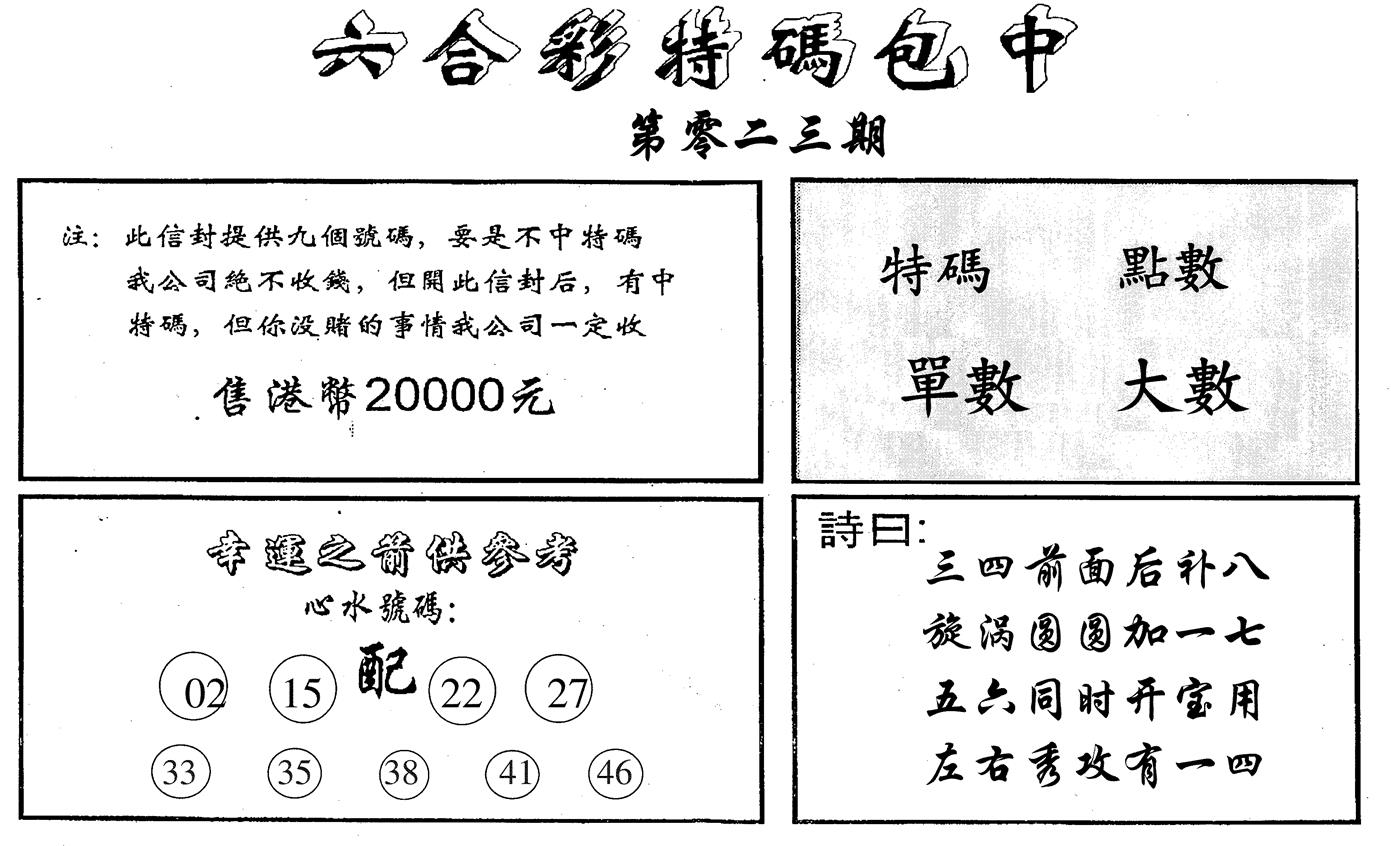 六合彩特碼包中
第零二三期
注：此信封提供九個號碼，要是不中特碼
我公司絕不收錢，但開此信封后，有中
特碼，但你没賭的事情我公司一定收
售港幣20000元
特碼 點數
單數 大數
幸運之箭供參考
心水號碼：
02 15 配 22 27
33 35 38 41 46
詩曰：
三四前面后补八
旋涡圆圆加一七
五六同时开宝用
左右秀攻有一四